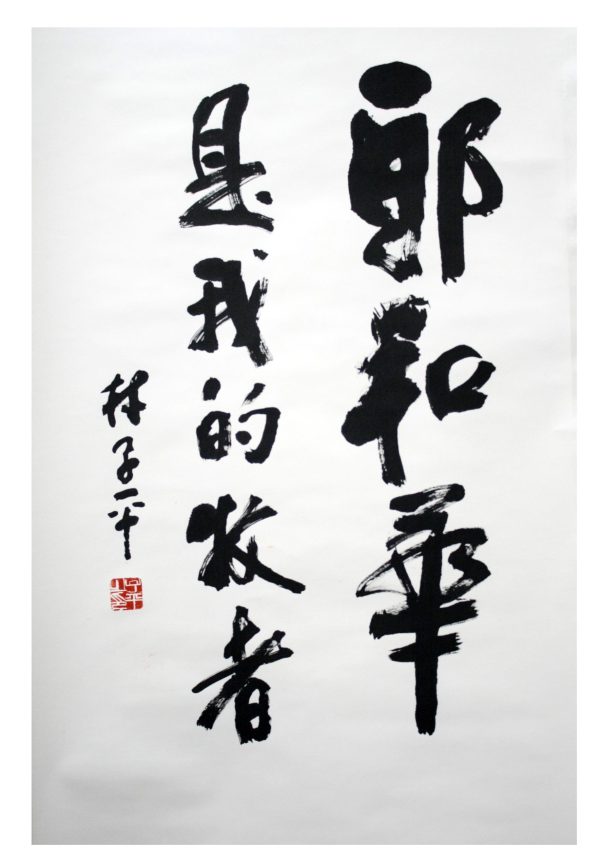 耶和華
是我的牧者
林子平